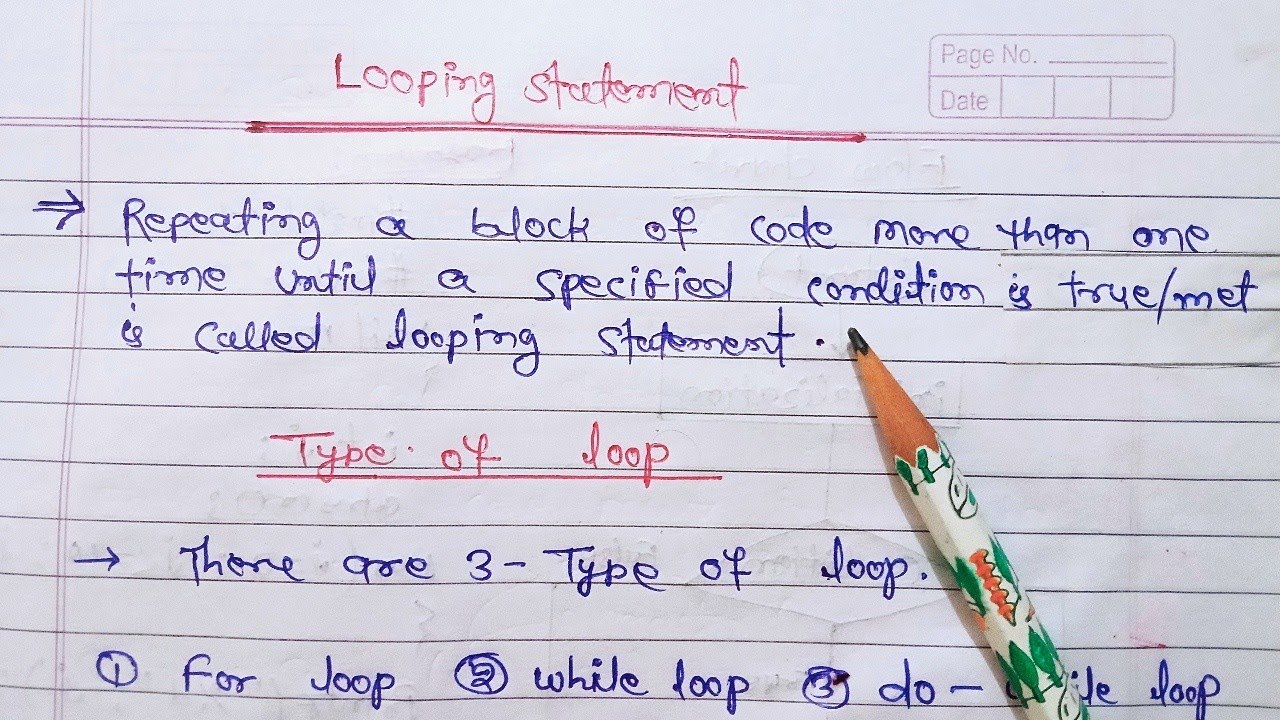 Looping statement
Page No.
Date
⇒ Repeating a block of code more than one
time until a specified condition is true/met
is called looping statement.
Type of loop
→ There are 3 - Type of loop.
① For loop ② while loop ③ do - while loop